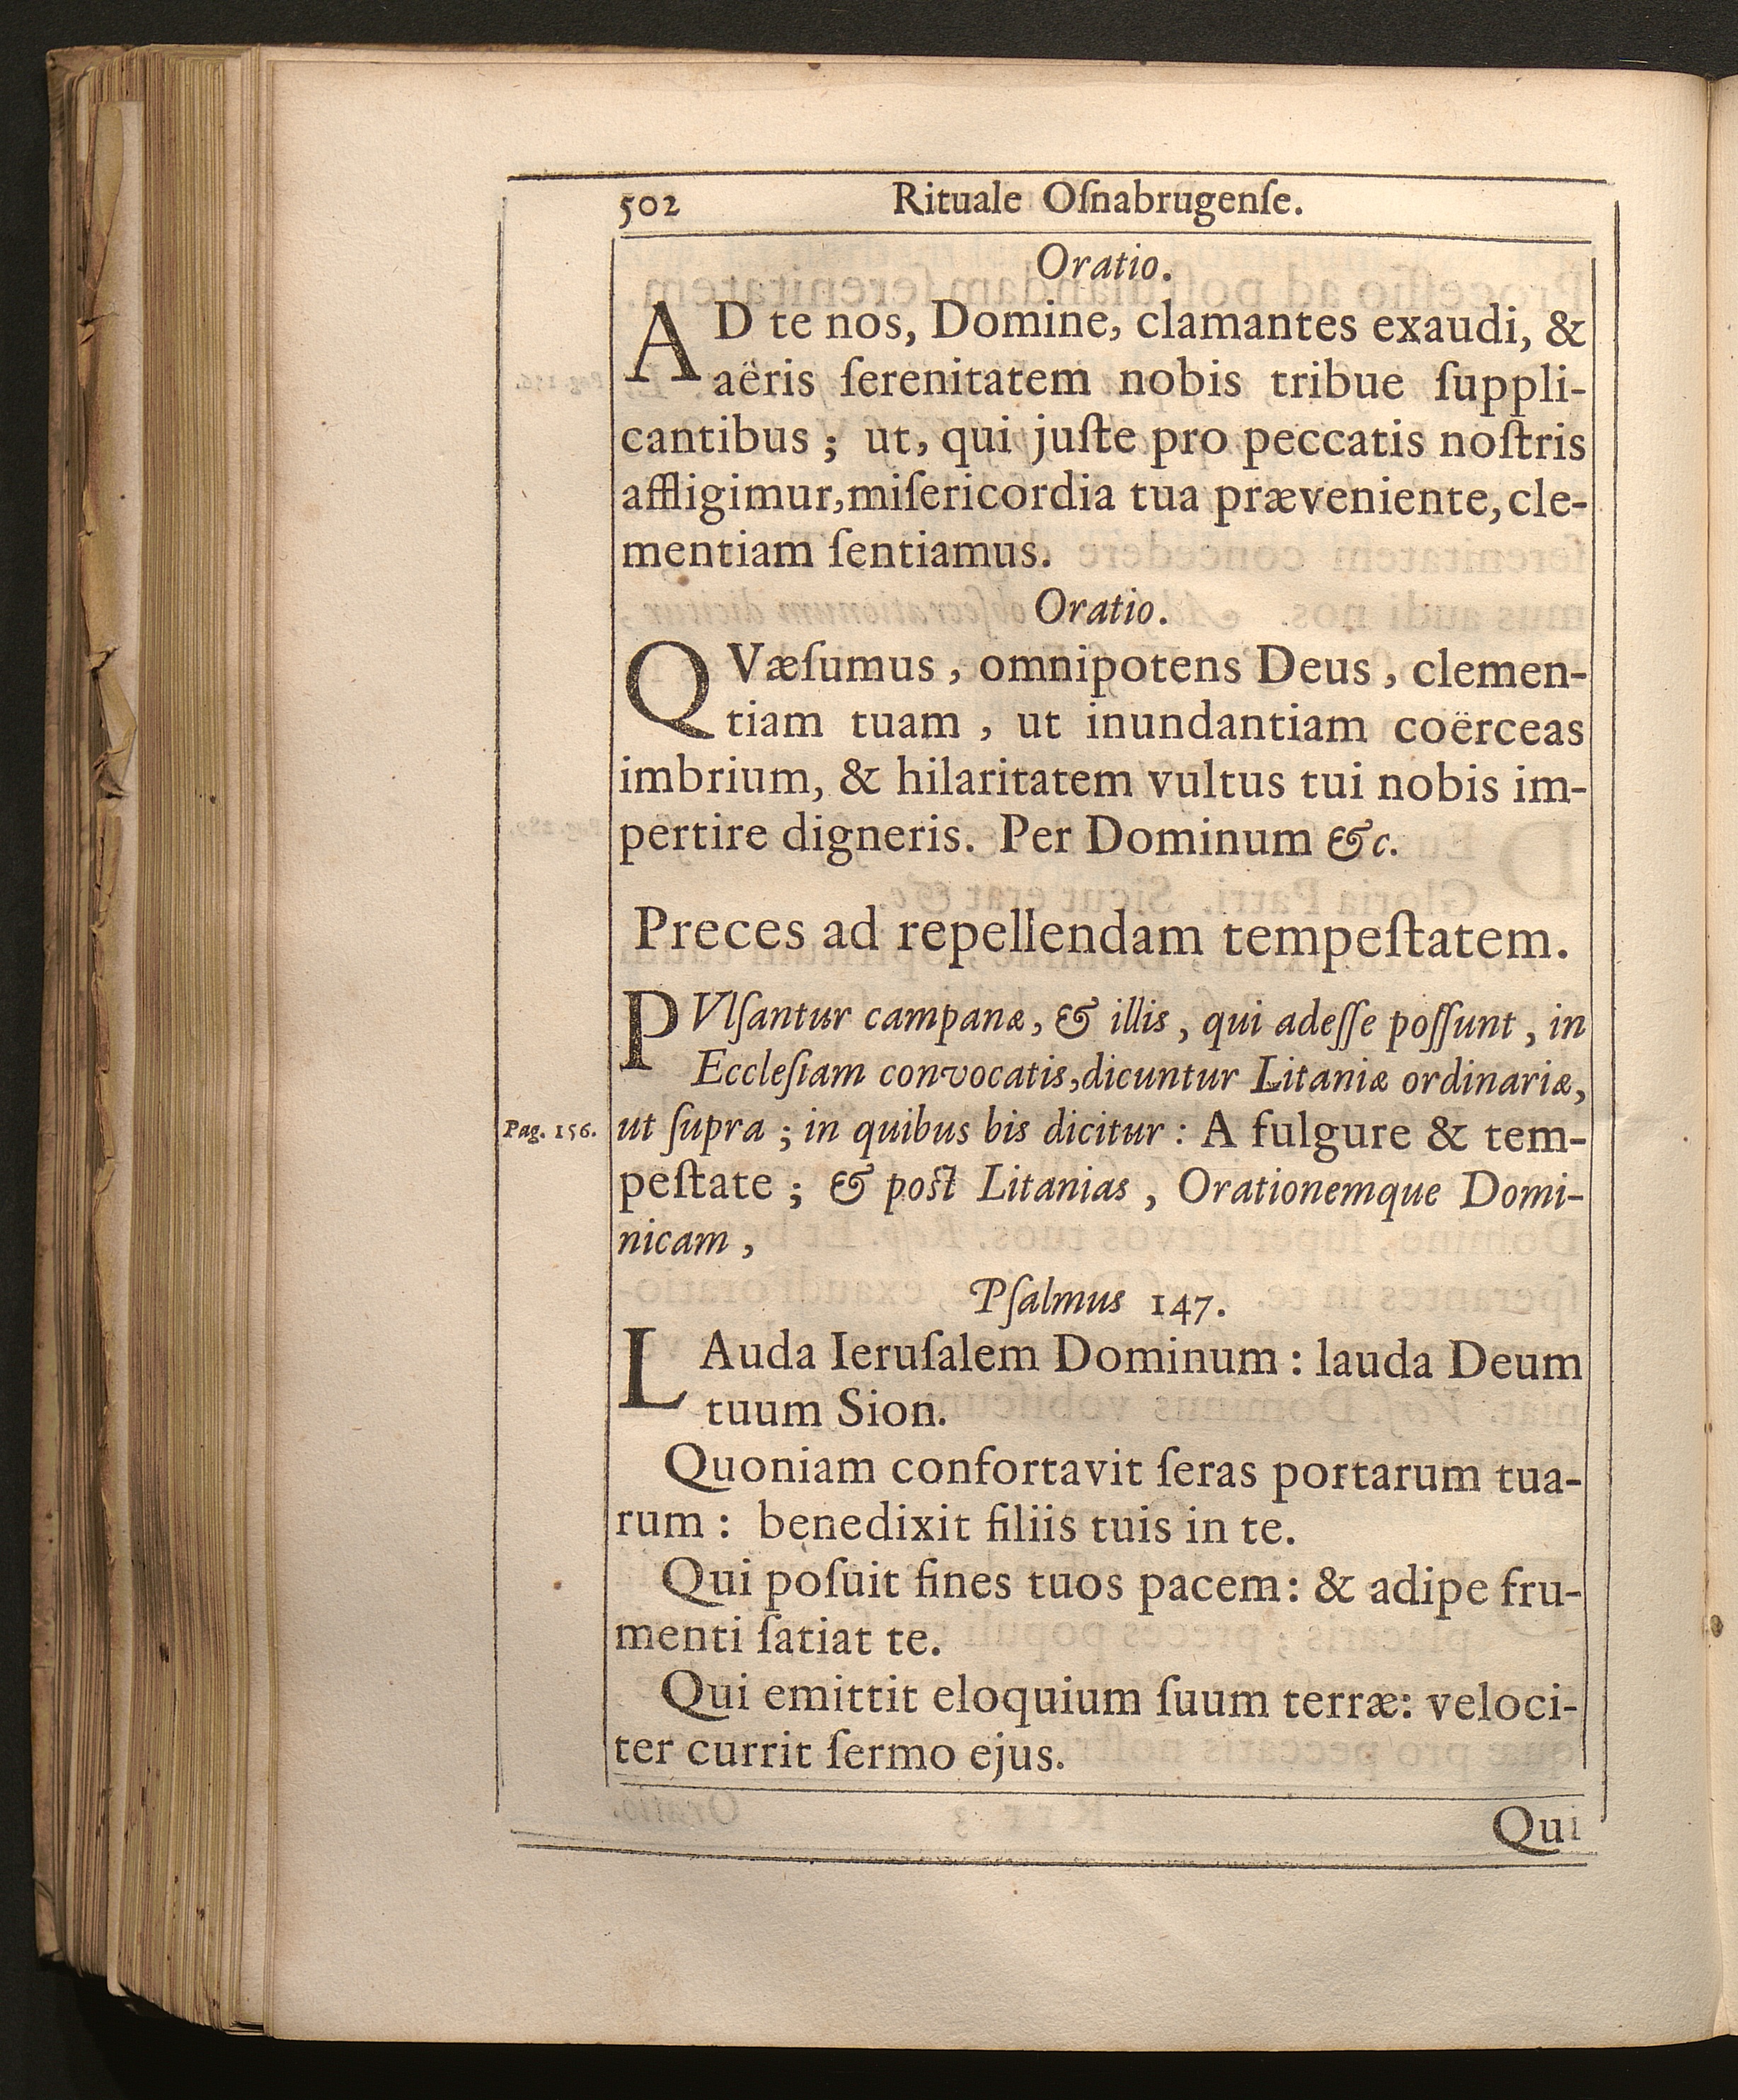 502 Rituale Oſnabrugenſe.
Oratio.
AD te nos, Domine, clamantes exaudi, &
aëris ſerenitatem nobis tribue ſuppli-
cantibus; ut, qui juſte pro peccatis noſtris
affligimur, miſericordia tua præveniente, cle-
mentiam ſentiamus.
Oratio.
QVæſumus, omnipotens Deus, clemen-
tiam tuam, ut inundantiam coërceas
imbrium, & hilaritatem vultus tui nobis im-
pertire digneris. Per Dominum &c.
Preces ad repellendam tempeſtatem.
PVlſantur campanæ, & illis, qui adeſſe poſſunt, in
Eccleſiam convocatis, dicuntur Litaniæ ordinariæ,
Pag. 156. ut ſupra; in quibus bis dicitur: A fulgure & tem-
peſtate; & poſt Litanias, Orationemque Domi-
nicam,
Pſalmus 147.
LAuda Ieruſalem Dominum: lauda Deum
tuum Sion.
Quoniam confortavit ſeras portarum tua-
rum: benedixit filiis tuis in te.
Qui poſuit fines tuos pacem: & adipe fru-
menti ſatiat te.
Qui emittit eloquium ſuum terræ: veloci-
ter currit ſermo ejus.
Qui